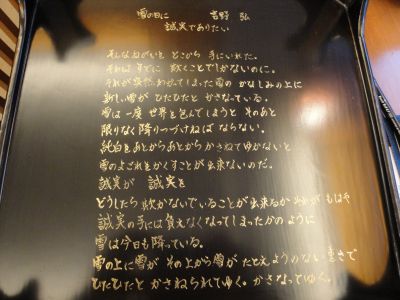 雪の日に 吉野 弘
誠実でありたい
そんなねがいを どこから 手にいれた。
それは すでに 欺くことでしかないのに。
それが突然わかってしまった雪の かなしみの上に
新しい雪が ひたひたと かさなっている。
雪は 一度 世界を包んでしまうと そのあと
限りなく 降りつづけねば ならない。
純白をあとからあとから かさねてゆかないと
雪のよごれをかくすことが 出来ないのだ。
誠実が 誠実を
どうしたら 欺かないでいることが 出来るか それが もはや
誠実の手には 負えなくなってしまったかの ように
雪は今日も 降っている。
雪の上に雪が その上から雪が たとえようのない 重さで
ひたひたと かさねられてゆく。かさなってゆく。